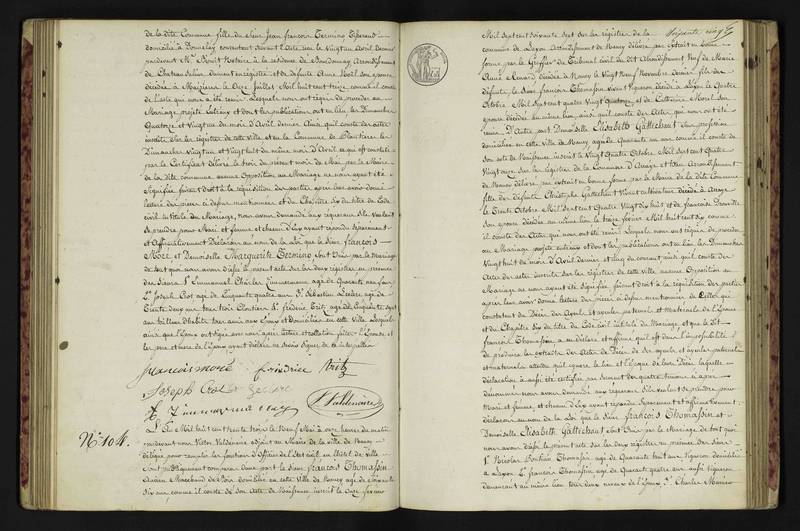 de la dite Commune fille du Sieur Jean françois Termino
domicilié à Donnelay consentant suivant l'acte
pardevant Me Benoit Notaire à la résidence de Arrondissement
de Château Salins dument enregistré et de défunte Anne son épouse
décédée à Mazières le Onze Juillet Mil huit cent treize comme il conste
de l'acte qui nous a été remis. Lesquels nous ont requis de procéder au
Mariage projeté entr'eux et dont les publications ont eu lieu les Dimanches
Quatorze et Vingt un du mois d'Avril dernier Ainsi qu'il conste des actes
inscrits sur les registres de cette ville et en la Commune de
Dimanches vingt un et Vingt huit du même mois d'Avril ce qui est constaté
par le Certificat délivré le trois du présent mois de Mai par le Maire
de la dite commune aucune Opposition au Mariage ne nous ayant été
Signifiée faisant droit à la réquisition des parties après leur avoir donné
lecture des pièces ci dessus mentionnées et du Chapitre Six du titre du Code
civil intitulé du Mariage, nous avons demandé aux requérans s'ils veulent
se prendre pour Mari et femme et chacun d'eux ayant répondu séparément
et Affirmativement Déclarons au nom de la Loi que le Sieur françois
Moré et Demoiselle Marguerite Termino, sont Unis par le Mariage
de tout quoi nous avons dressé le présent acte sur les deux registres en présence
des Sieurs 1° Emmanuel Charles Zimmermann agé de Quarante
2° Joseph Crot, agé de Cinquante quatre ans 3° Sébastien Leclerc agé de
Trente deux ans tous trois 4° frédéric Britz agé de
domiciliés en cette Ville Lesquels
ainsi que l'époux ont signé avec nous après lecture et collation faite. L'Epouse et
les père et mère de l'époux ayant déclaré ne savoir signer de ce interpellés
françois moré friedrice Britz
Joseph Crot Leclerc
Zimmermann
Valdenaire
N° 104.
L'An Mil huit cent trente trois le Neuf Mai à onze heures du matin
pardevant nous Victor Valdenaire adjoint au Maire de la ville de Nancy
délégué pour remplir les fonctions d'Officier de l'Etat civil, en l'hôtel de Ville
sont publiquement comparus d'une part le Sieur françois Thomassin
ancien Marchand de domicilié en cette Ville de Nancy agé de soixante
six ans comme il conste de son Acte de Naissance inscrit le Onze février
Mil sept cent soixante sept sur les registres de la
commune de Laxou Arrondissement de Nancy délivré par extrait en bonne
forme par le Greffier du Tribunal civil du dit Arrondissement Veuf de Marie
Anne Renard, décédée à Nancy le Vingt Neuf Novembre dernier fils des
défunts, le Sieur françois Thomassin vivant Vigneron décédé à Laxou le Quatre
Octobre Mil sept cent quatre Vingt Quatorze et de Catherine Morel son
épouse décédée au même lieu, ainsi qu'il conste des Actes qui nous ont été
remis. D'autre part Demoiselle Elisabeth Gattechaut Sans profession
domiciliée en cette Ville de Nancy agée de Quarante un ans comme il conste de
son acte de Naissance inscrit le Vingt Quatre Octobre Mil sept cent Quatre
Vingt onze sur les registres de la Commune d'Anaye et Arrondissement
de Nancy délivré par extrait en bonne forme par le Maire de la dite Commune
fille des défunts Christophe Gattechaut Vivant cultivateur décédé à Anaye
le Trente Octobre Mil sept cent Quatre Vingt dix huit et de françoise
son épouse décédée au même lieu le treize février Mil huit cent dix comme
il conste des Actes qui nous ont été remis. Lesquels nous ont requis de procéder
au Mariage projeté entr'eux et dont les publications ont eu lieu les Dimanches
Vingt huit du mois d'Avril dernier et cinq du courant ainsi qu'il conste des
Actes inscrits sur les registres de cette ville aucune Opposition au
Mariage ne nous ayant été Signifiée, faisant droit à la réquisition des parties
après leur avoir donné lecture des pièces ci dessus mentionnées de Celles qui
constatent du Décès des Ayeuls et ayeules paternels et Maternels de l'épouse
et du Chapitre Six du titre du Code civil intitulé du Mariage, et que le dit
françois Thomassin a déclaré et affirmé qu'il est dans l'impossibilité
de produire les extraits des Actes de Décès de ses ayeuls et ayeules paternels
et maternels attendu qu'il ignore le lieu et l'époque de leur Décès laquelle
déclaration a aussi été certifiée par serment des quatre témoins ci après
dénommés nous avons demandé aux requérans s'ils veulent se prendre pour
Mari et femme et chacun d'eux ayant répondu séparément et affirmativement
déclarons au nom de la Loi que le Sieur françois Thomassin et
Demoiselle Elisabeth Gattechaut sont Unis par le Mariage de tout quoi
nous avons dressé le présent acte sur les deux registres en présence des Sieurs
1° Nicolas Thomassin, agé de Quarante huit ans Vigneron domicilié
à Laxou 2° françois Thomassin, agé de Quarante quatre ans aussi Vigneron
demeurant au même lieu tous deux neveux de l'époux, 3° Charles